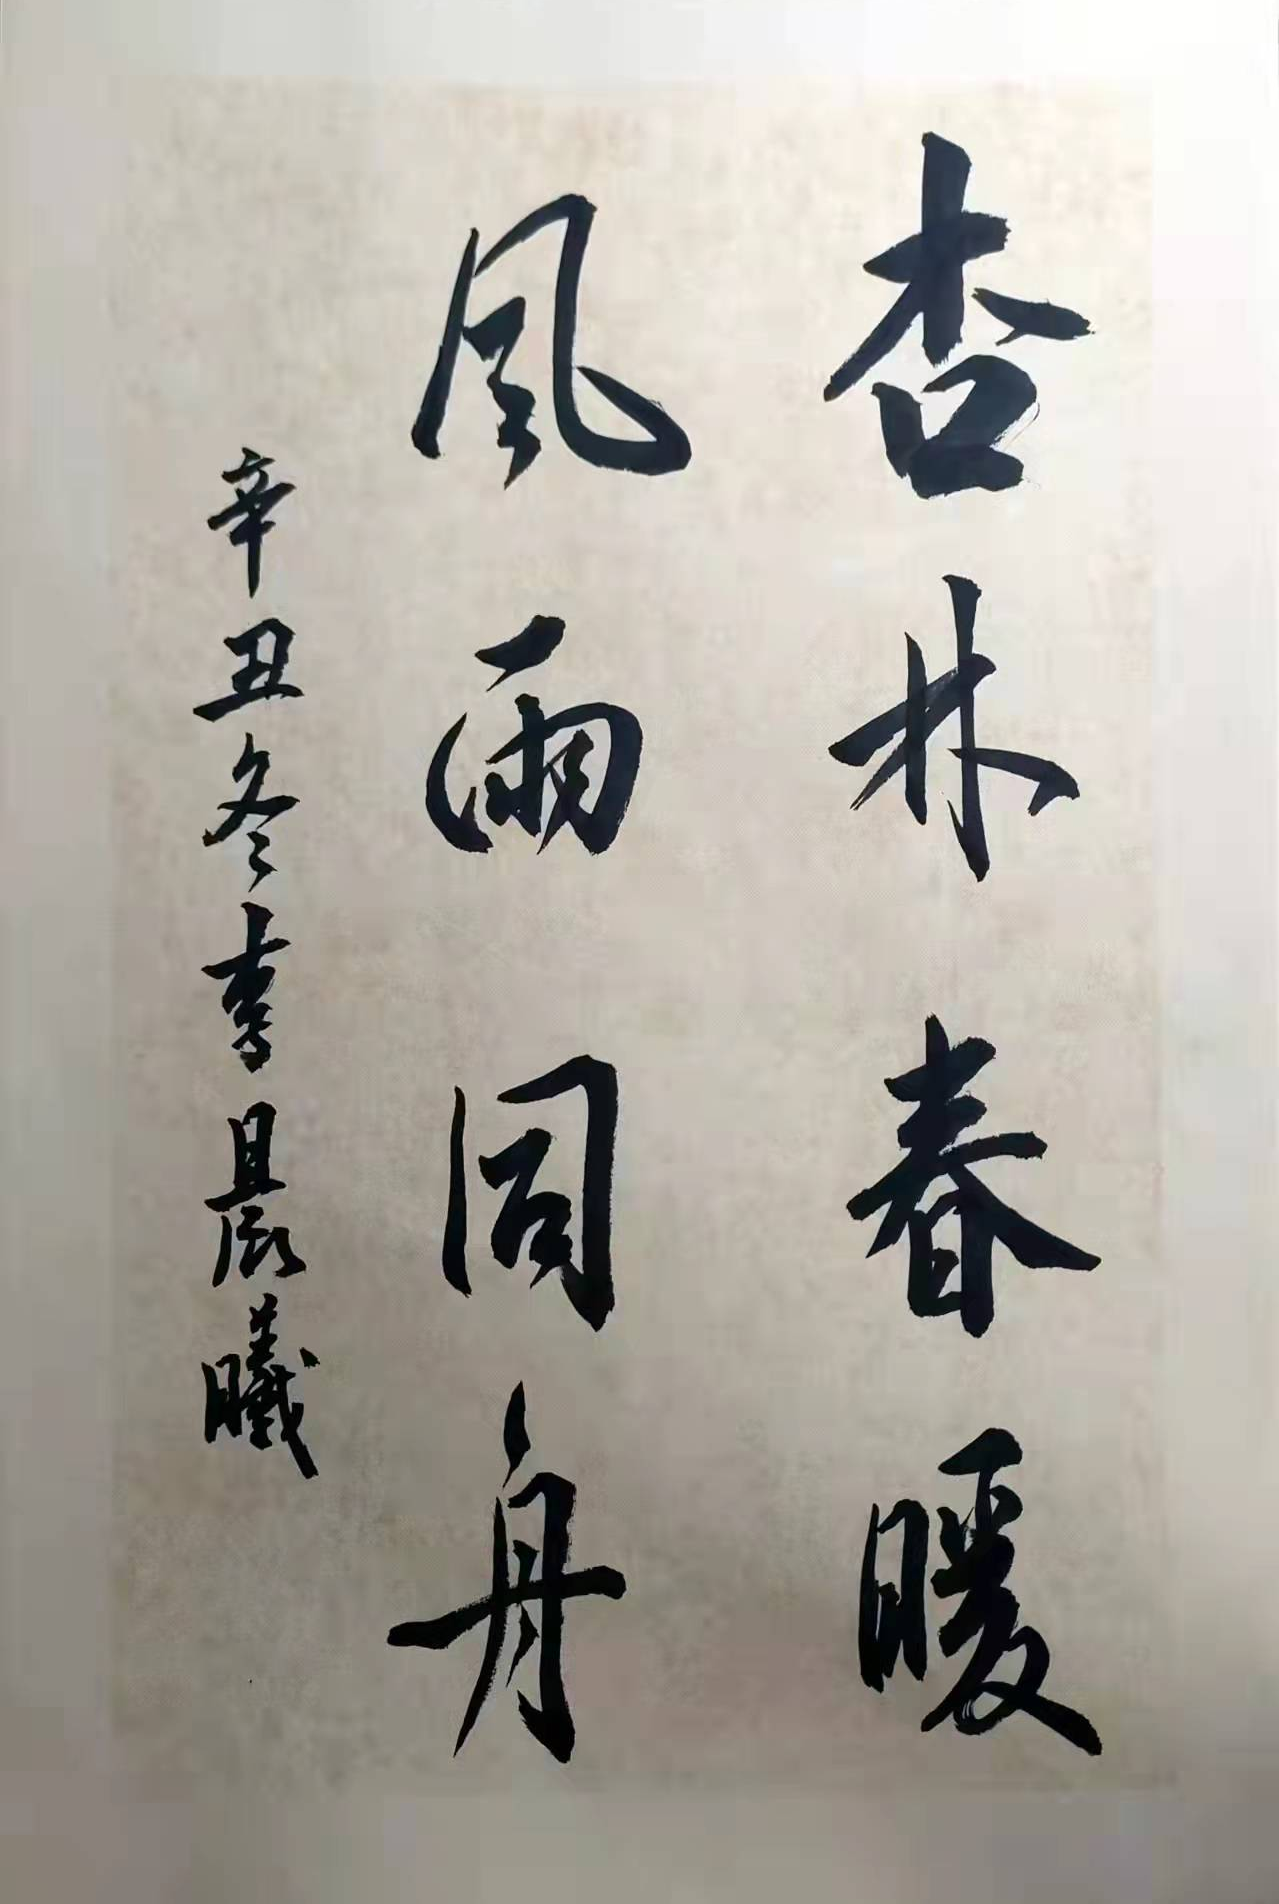 杏林春暖
風雨同舟
辛丑冬李晨曦